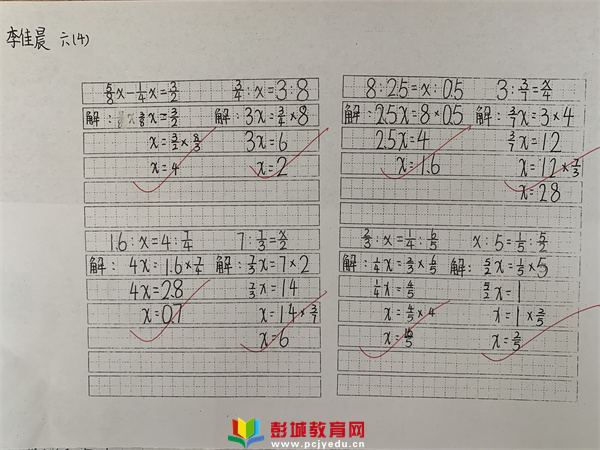 李佳晨 六(4)
5/8x-1/4x=3/2
解: 3/8x=3/2
x=3/2×8/3
x=4
3/4:x=3:8
解:3x=3/4×8
3x=6
x=2
8:2.5=x:0.5
解:2.5x=8×0.5
2.5x=4
x=1.6
3:3/7=x/4
解:3/7x=3×4
3/7x=12
x=12×7/3
x=28
1.6:x=4:7/4
解:4x=1.6×7/4
4x=2.8
x=0.7
7:7/3=x/2
解:7/3x=7×2
7/3x=14
x=14×3/7
x=6
2/3:x=1/4:6/5
解:1/4x=2/3×6/5
1/4x=4/5
x=4/5×4
x=16/5
x:5=1/5:5/2
解:5/2x=1/5×5
5/2x=1
x=1×2/5
x=2/5
彭城教育网
www.pcjyedu.cn